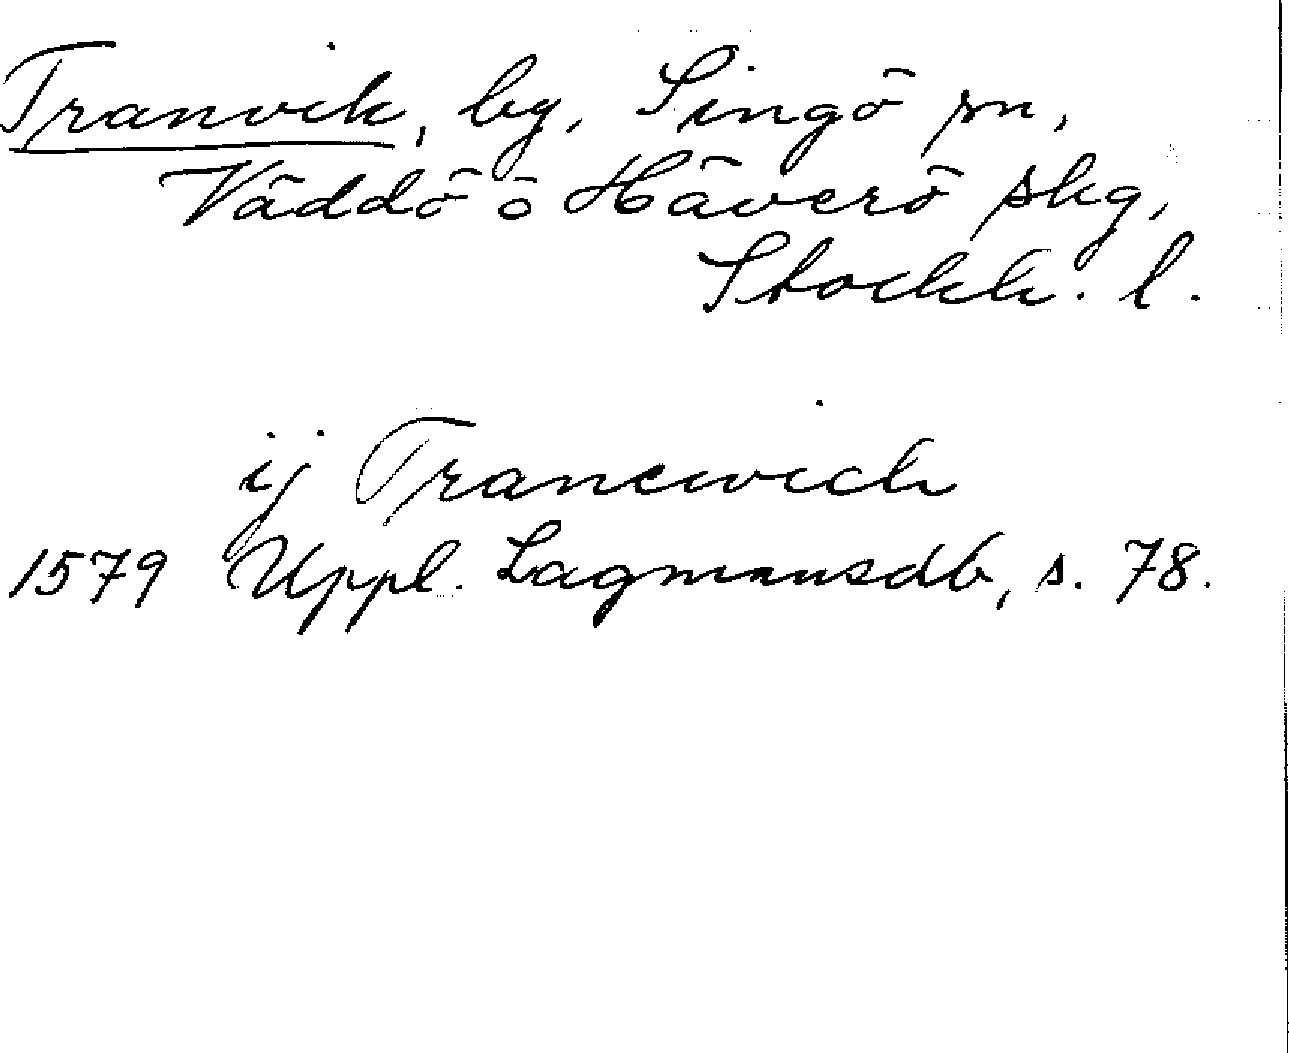 Tranvik, by, Singö sn,
Väddö o Häverö skg,
Stockh. l.
ij Tranewich
1579 Uppl. Lagmansdb, s. 78.